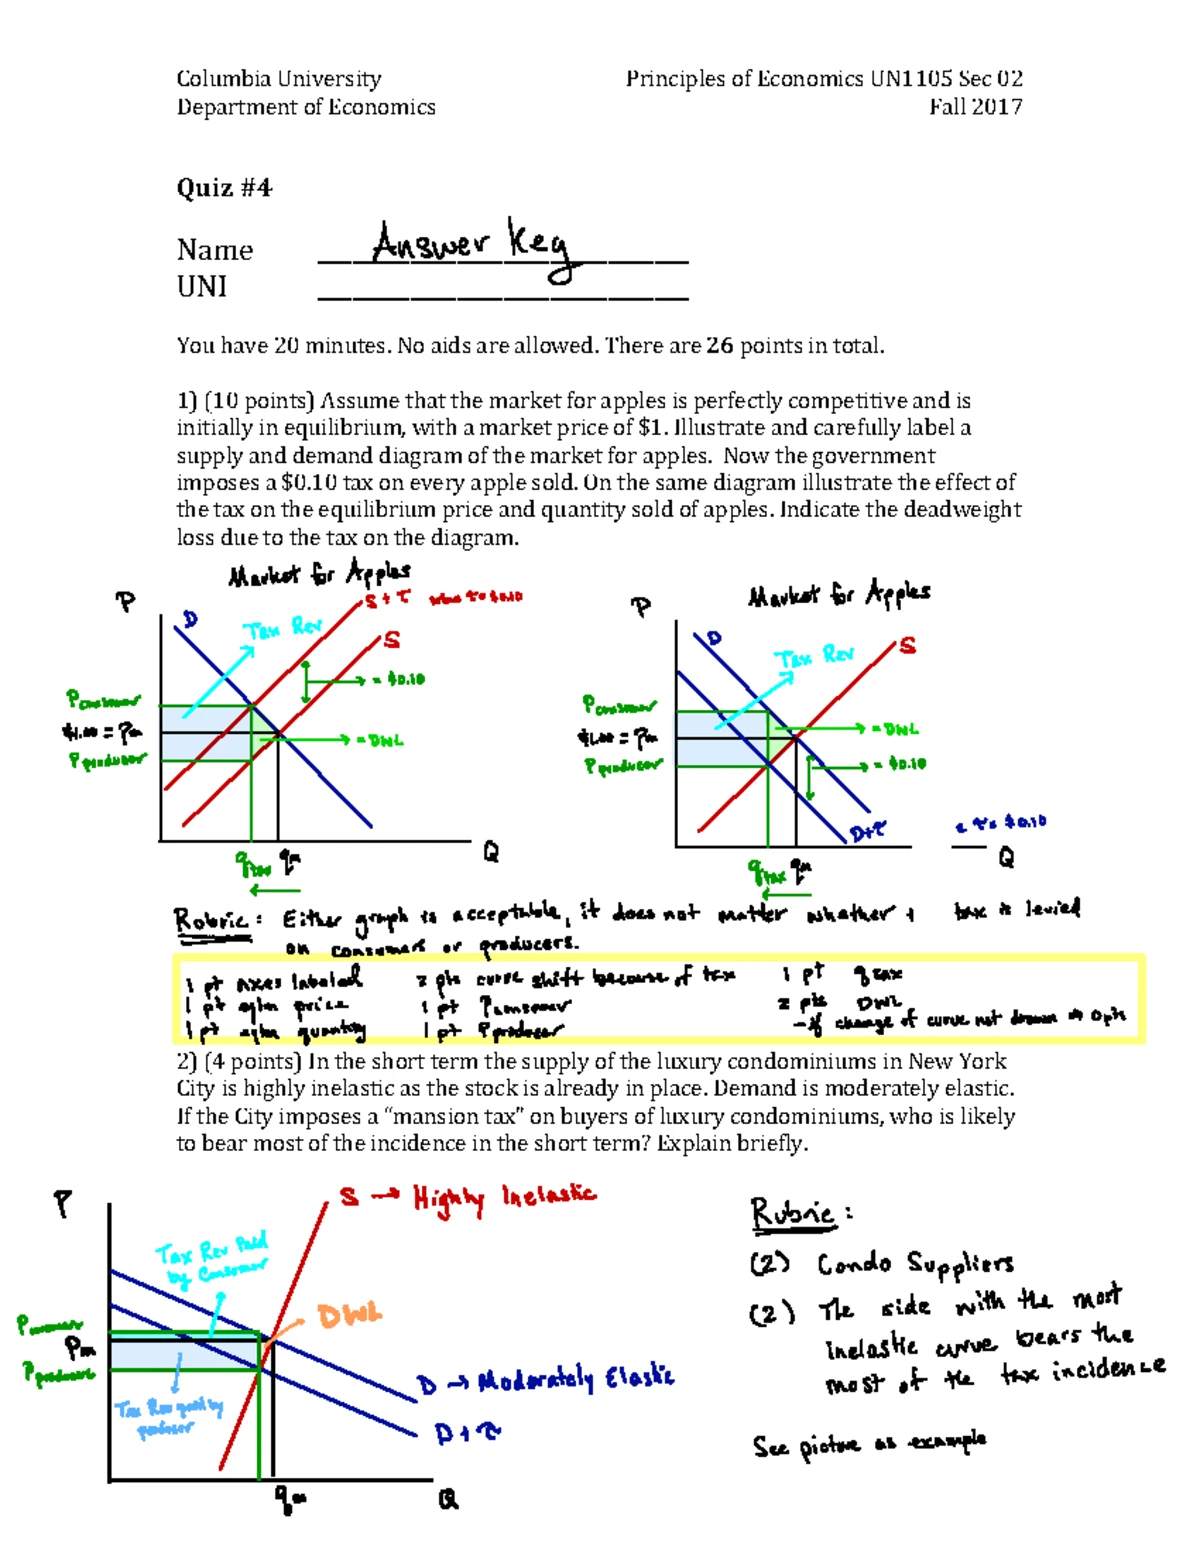 Columbia University Principles of Economics UN1105 Sec 02
Department of Economics Fall 2017
Quiz #4
Name Answer Key
UNI
You have 20 minutes. No aids are allowed. There are 26 points in total.
1) (10 points) Assume that the market for apples is perfectly competitive and is
initially in equilibrium, with a market price of $1. Illustrate and carefully label a
supply and demand diagram of the market for apples. Now the government
imposes a $0.10 tax on every apple sold. On the same diagram illustrate the effect of
the tax on the equilibrium price and quantity sold of apples. Indicate the deadweight
loss due to the tax on the diagram.
Market for Apples
P
D
Tax Rev
S + τ
S
= $0.10
Pconsumer
$1.00 = Pm
Pproducer
= DWL
qtax qm
Q
Market for Apples
P
D
Tax Rev
S
Pconsumer
$1.00 = Pm
Pproducer
= DWL
= $0.10
D+τ
τ = $0.10
qtax qm
Q
Rubric: Either graph is acceptable, it does not matter whether tax is levied
on consumers or producers.
1 pt axes labeled 2 pts curve shift because of tax 1 pt qtax
1 pt eqlm price 1 pt Pconsumer 2 pts DWL
1 pt eqlm quantity 1 pt Pproducer - if change of curve not drawn → 0 pts
2) (4 points) In the short term the supply of the luxury condominiums in New York
City is highly inelastic as the stock is already in place. Demand is moderately elastic.
If the City imposes a “mansion tax” on buyers of luxury condominiums, who is likely
to bear most of the incidence in the short term? Explain briefly.
P
S → Highly Inelastic
Tax Rev Paid
by Consumer
DWL
Pconsumer
Pm
Pproducer
Tax Rev paid by
producer
D → Moderately Elastic
D + τ
qm
Q
Rubric:
(2) Condo Suppliers
(2) The side with the most
inelastic curve bears the
most of the tax incidence
See picture as example